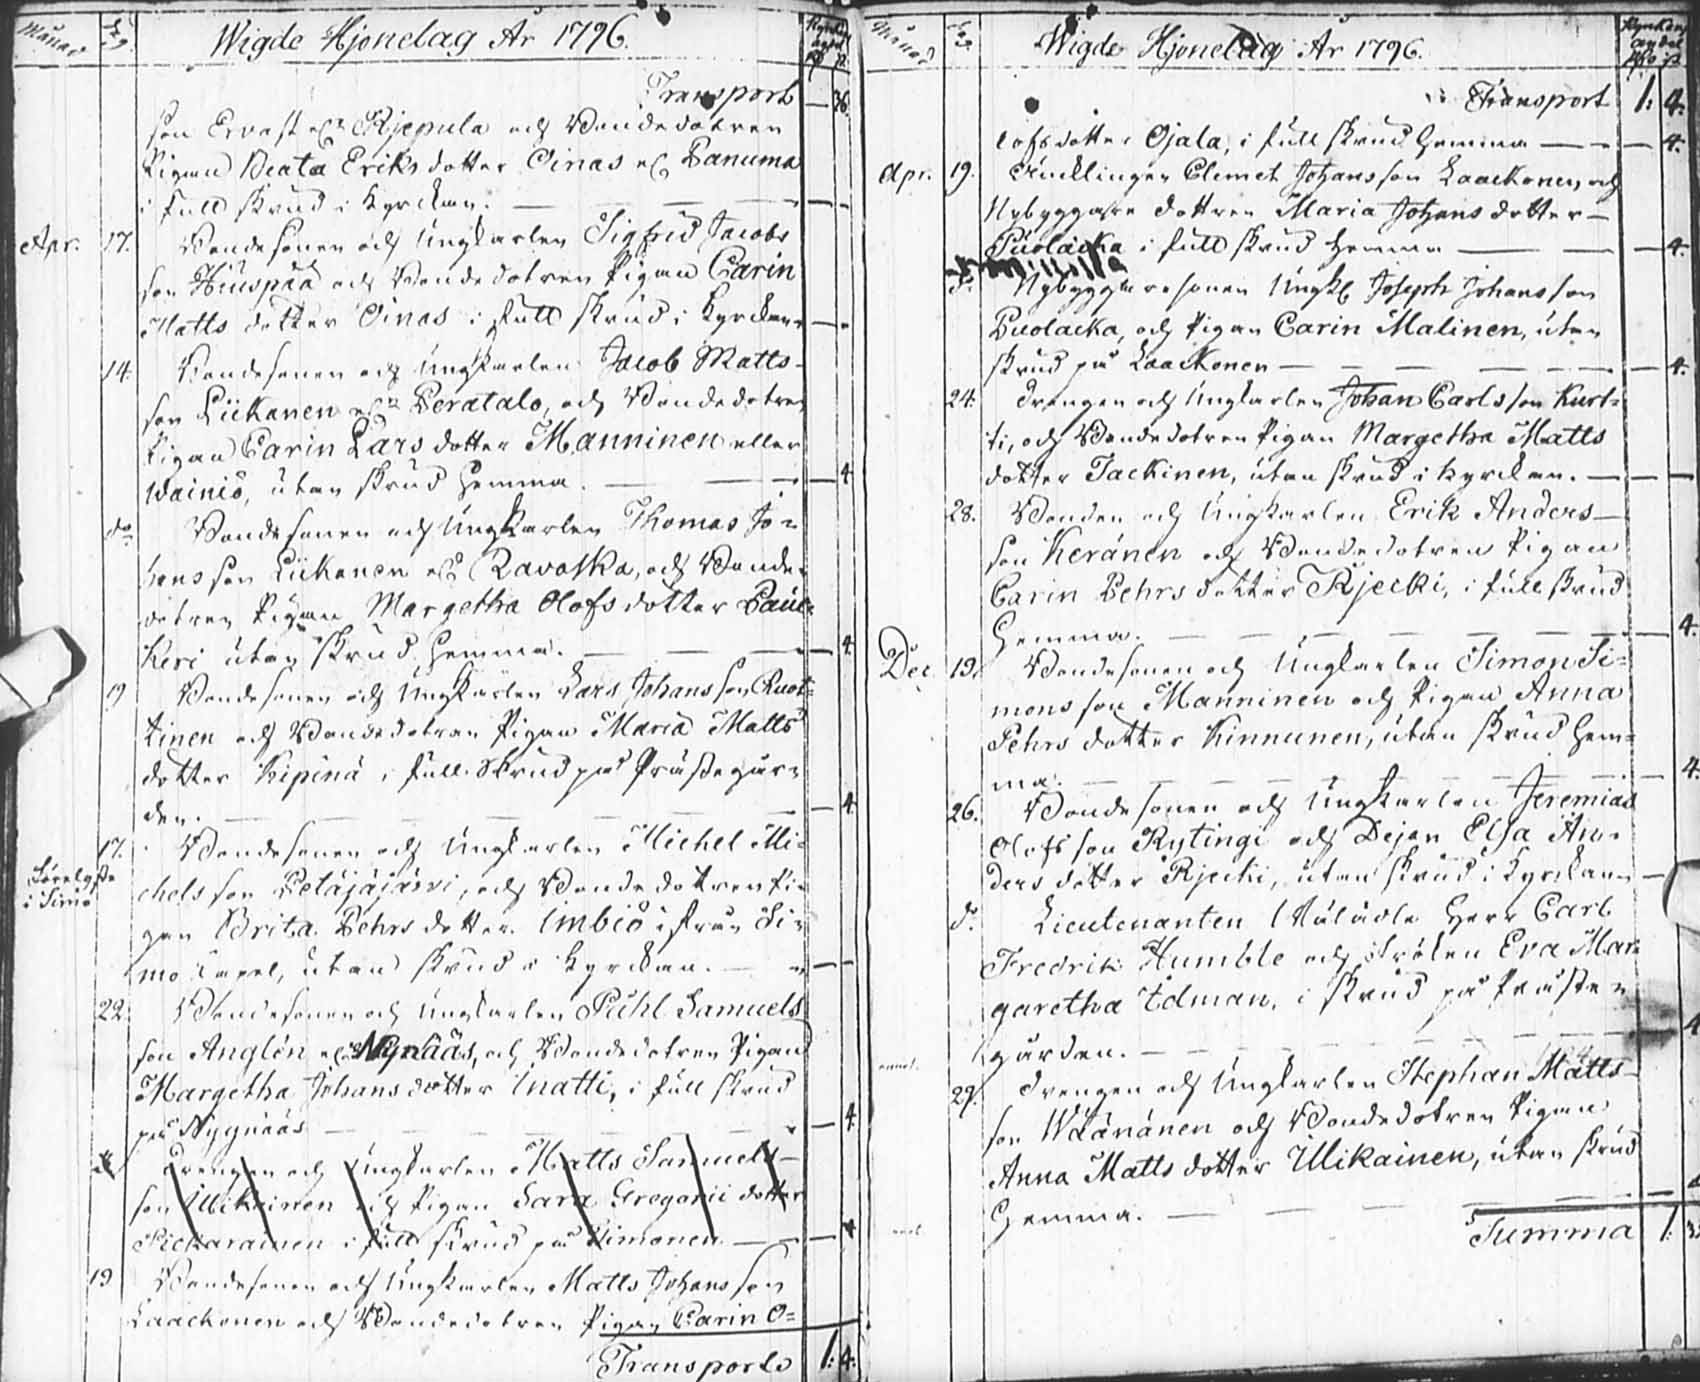 Månad Dag Wigde Hjonelag År 1796. Kyrkans andel
Transport — 36
son Ervast elr Kjepula och Bondedotren
Pigan Beata Eriks dotter Oinas elr Panuma
i full skrud i Kyrckan. — —
Apr. 17. Bondesonen och Ungkarlen Sigfrid Jacobs
son Hiuspää och Bondedotren Pigan Carin
Matts dotter Oinas i full skrud i Kyrckan —
14. Bondesonen och Ungkarlen Jacob Matts-
son Liikanen elr Peratalo, och Bondedotren
Pigan Carin Lars dotter Manninen eller
Wainiö, utan skrud hemma. — — 4
do Bondesonen och Ungkarlen Thomas Jo=
hans son Liikanen elr Ravaska, och Bonde=
dotren Pigan Margetha Olofs dotter Paul=
Keri utan skrud hemma. — — 4.
19 Bondesonen och Ungkarlen Lars Johans son Ruot=
tinen och Bondedotran Pigan Maria Matts
dotter Kipinä i full skrud på Prästegår=
den. — — 4
17. Bondesonen och Ungkarlen Michel Mi=
Förelyste
i Simo
chels son Petäjäjärvi, och Bondedottren Pi=
gan Brita Pehrs dotter Imbiö ifrån Si=
mo Capel, utan skrud i Kyrckan. — —
22. Bondesonen och Ungkarlen Påhl Samuels
son Anglén elr Nynääs, och Bondedotren Pigan
Margetha Johans dotter Inatti, i full skrud
på Nygnääs — — 4
Drengen och Ungkarlen Matts Samuels-
son Ulikainen och Pigan Sara Gregorii dotter
Pickarainen i full skrud på Simonen — — 4
19 Bondesonen och Ungkarlen Matts Johans son
Laackonen och Bondedotren Pigan Carin O=
Transporte 1: 4.
Månad Dag Wigde Hjonelag År 1796. Kyrkans andel
Transport 1: 4.
lofsdotter Ojala, i full skrud hemma — — 4.
Apr. 19. Enklingen Clemet Johans son Laackonen, och
Nybyggare dottren Maria Johans dotter —
Puolacka i full skrud hemma — — 4.
do Nybyggaresonen Ungk Joseph Johans son
Puolacka, och Pigan Carin Malinen, utan
skrud på Laackonen — — 4.
24. Drengen och Ungkarlen Johan Carls son Kurt=
ti, och Bondedotren Pigan Margetha Matts
dotter Tackinen, utan skrud i Kyrckan. — —
28. Bonden och Ungkarlen Erik Anders —
son Keränen och Bondedotren Pigan
Carin Pehrs dotter Kjecki, i full skrud
hemma. — — 4.
Dec. 19. Bondesonen och Ungkarlen Simon Si=
mons son Manninen och Pigan Anna
Pehrs dotter Kinnunen, utan skrud hem=
ma. — — 4.
26. Bondesonen och Ungkarlen Jeremias
Olofs son Rytingi och Dejan Elsa An=
ders dotter Kjecki, utan skrud i Kyrckan —
do Lieutenanten Wälädle Herr Carl
Fredrik Humble och Fröken Eva Mar=
garetha Edman, i skrud på Präste=
gården. — — 4
27. Drengen och Ungkarlen Stephan Matts-
son Wäänänen och Bondedotren Pigan
Anna Matts dotter Ulikainen, utan skrud
hemma. — —
Summa 1: